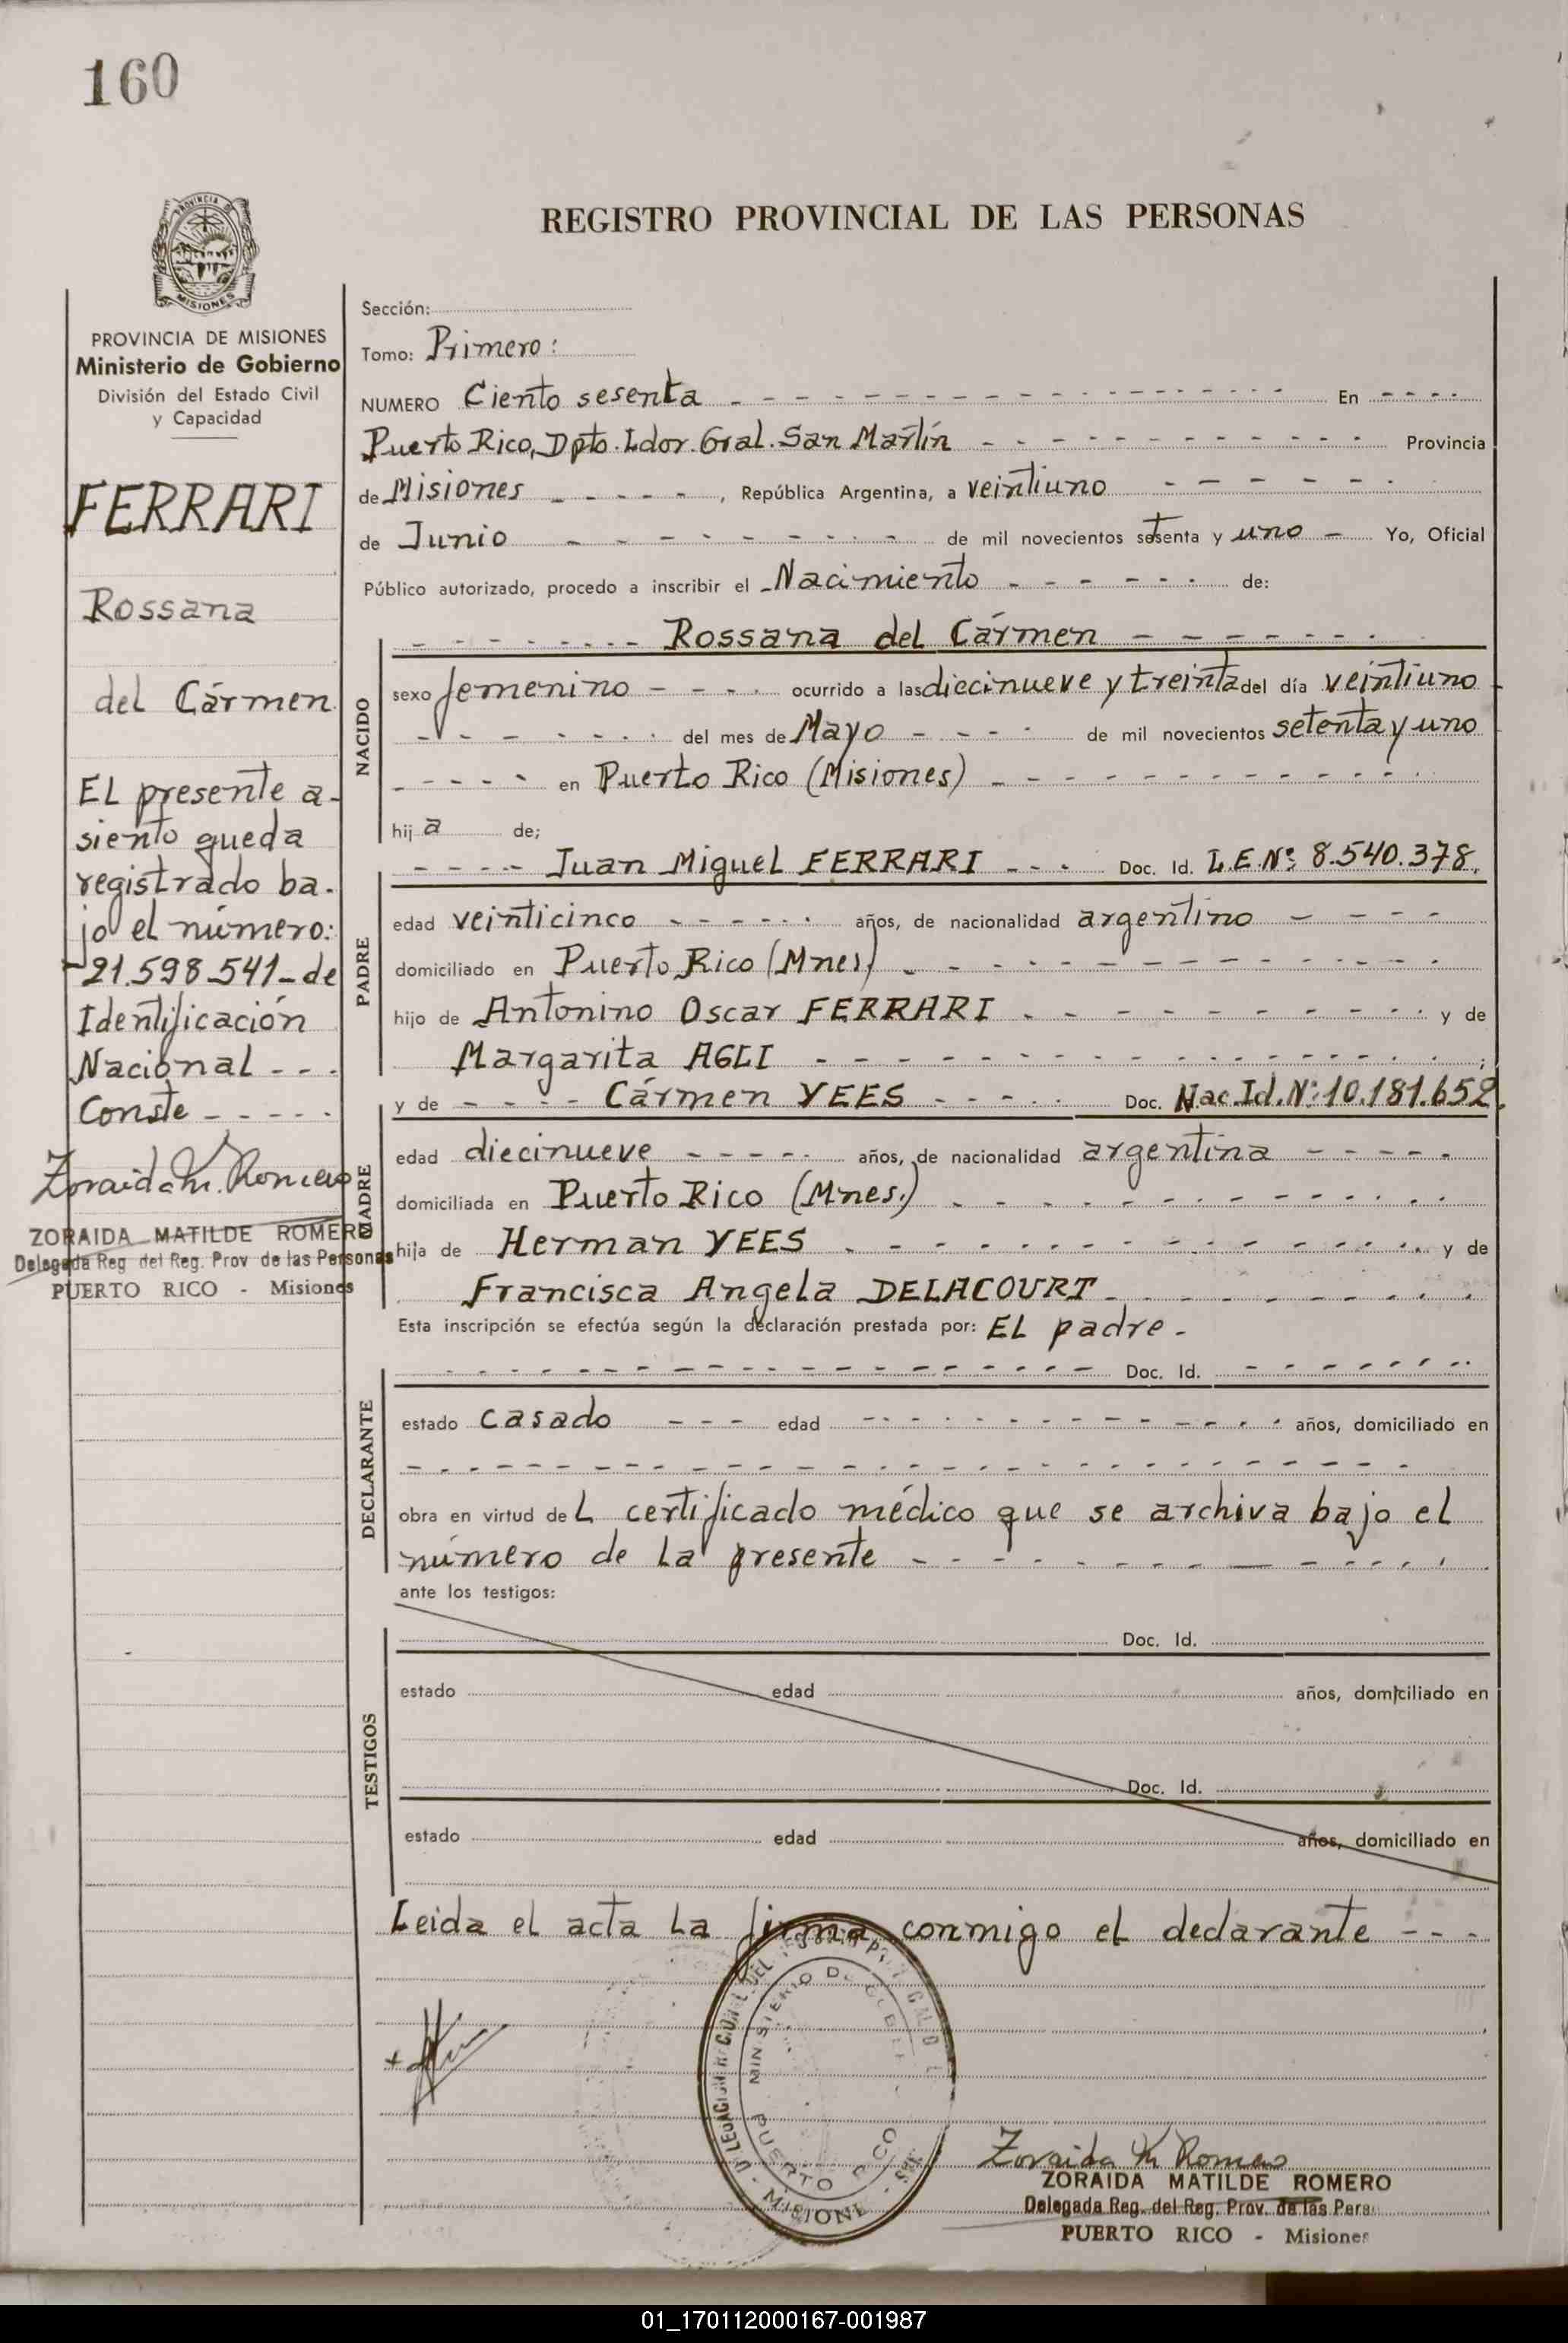 160
PROVINCIA DE
MISIONES
REGISTRO PROVINCIAL DE LAS PERSONAS
PROVINCIA DE MISIONES
Ministerio de Gobierno
División del Estado Civil
y Capacidad
FERRARI
Rossana
del Cármen
EL presente a-
siento queda
registrado ba-
jo el número:
-21.598.541- de
Identificación
Nacional - - -
Conste - - - - -
Zoraida M. Romero
ZORAIDA MATILDE ROMERO
Delegada Reg del Reg. Prov de las Personas
PUERTO RICO - Misiones
Sección:
Tomo: Primero:
NUMERO Ciento sesenta - - - En - - - -
Puerto Rico, Dpto. Ldor. Gral. San Martín - - - Provincia
de Misiones - - - - -, República Argentina, a veintiuno - - -
de Junio - - - de mil novecientos setenta y uno - Yo, Oficial
Público autorizado, procedo a inscribir el Nacimiento - - - de:
- - - Rossana del Cármen - - -
NACIDO
sexo femenino - - - - ocurrido a las diecinueve y treinta del día veintiuno
- - - del mes de Mayo - - - de mil novecientos setenta y uno
- - - - en Puerto Rico (Misiones) - - -
hija de;
- - - - Juan Miguel FERRARI - - - Doc. Id. L.E.Nº: 8.540.378.
PADRE
edad veinticinco - - - años, de nacionalidad argentino - - - -
domiciliado en Puerto Rico (Mnes) - - -
hijo de Antonino Oscar FERRARI - - - y de
Margarita AGLI - - - ;
y de - - - - Cármen YEES - - - Doc. Nac. Id. Nº: 10.181.652.
MADRE
edad diecinueve - - - años, de nacionalidad argentina - - - - -
domiciliada en Puerto Rico (Mnes.) - - -
hija de Herman YEES - - - y de
Francisca Angela DELACOURT - - -
Esta inscripción se efectúa según la declaración prestada por: EL padre.-
- - - Doc. Id. - - -
DECLARANTE
estado casado - - - edad - - - años, domiciliado en
- - -
obra en virtud de L certificado médico que se archiva bajo el
número de la presente - - -
ante los testigos:
TESTIGOS
Doc. Id.
estado edad años, domiciliado en
Doc. Id.
estado edad años, domiciliado en
Leida el acta la firma conmigo el declarante - - -
MINISTERIO DE
PUERTO RICO
Zoraida M Romero
ZORAIDA MATILDE ROMERO
Delegada Reg. del Reg. Prov. de las Pers
PUERTO RICO - Misiones
01_170112000167-001987